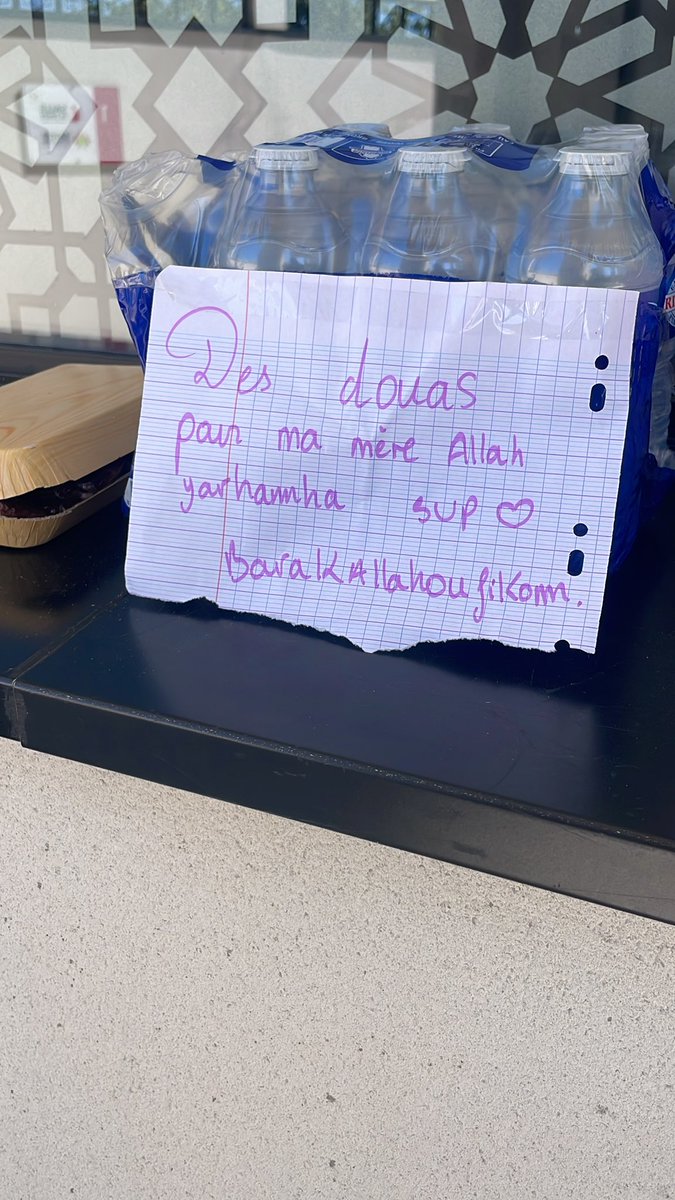 Des douas
pour ma mère Allah
yarhamha sup ♡
BarakAllahou fikom.